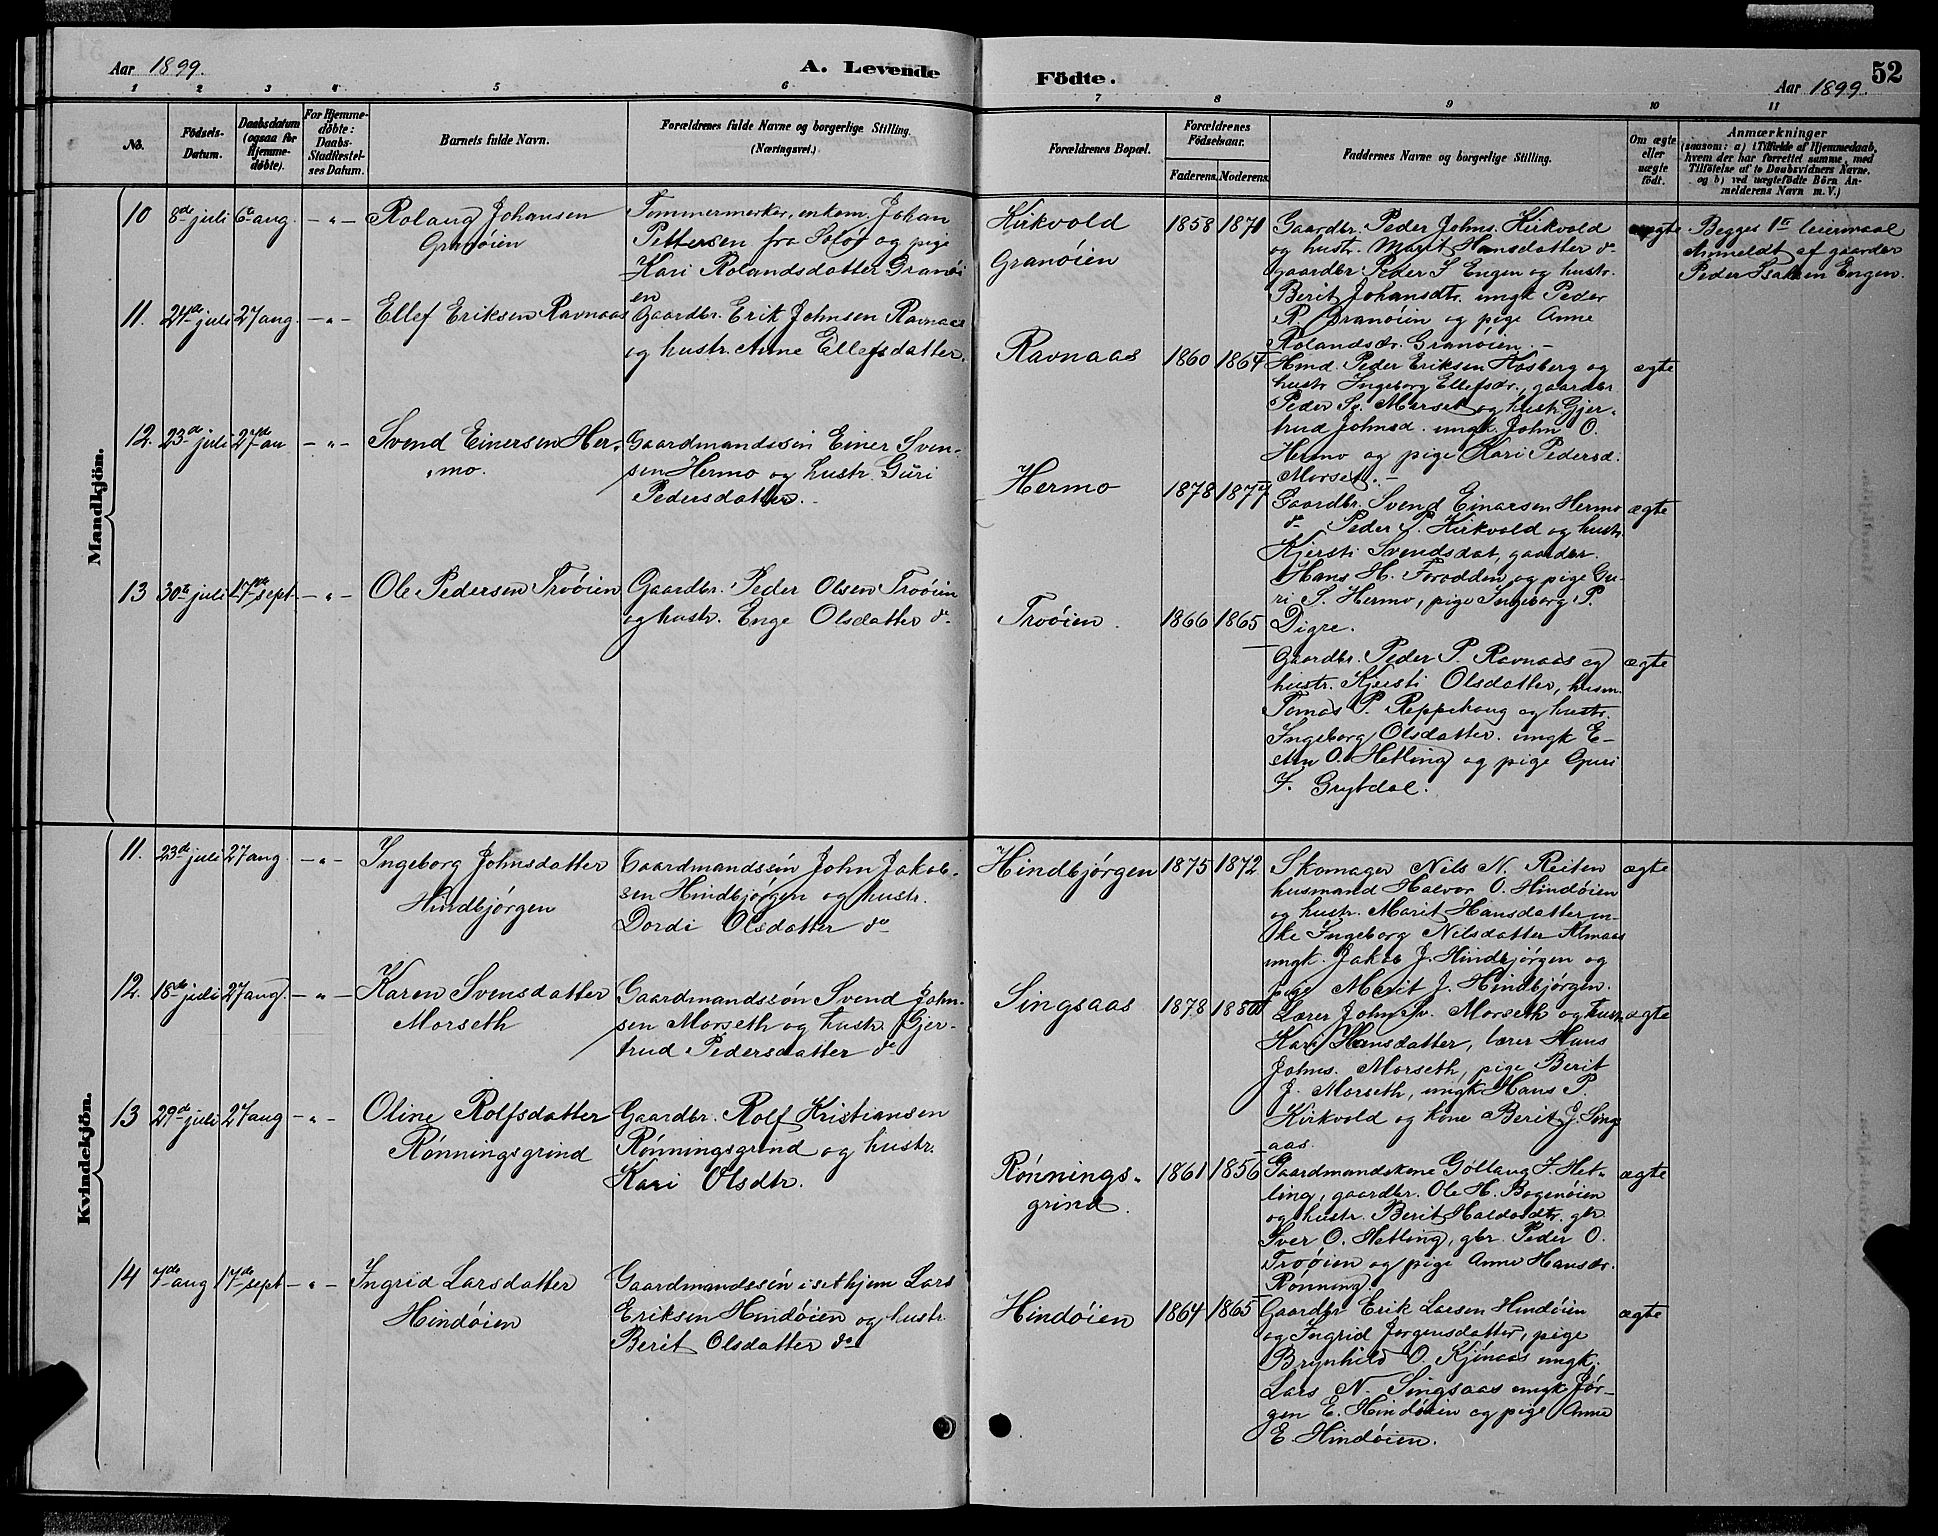 Aar 1899.
A. Levende
1 2 3 4 5 6
No.
Födsels-
Datum.
Daabsdatum
(ogsaa for
Hjemme-
døbte).
For Hjemme-
döbte:
Daabs-
Stadfæstel-
ses Datum.
Barnets fulde Navn.
Forældrenes fulde Navne og borgerlige Stilling.
(Næringsvei.)
Mandkjön.
10 8de juli 6te aug. - " - Roland Johansen
Granöien
Tømmermerker, enkem. Johan
Pettersen fra Solör og pige
Kari Rolandsdatter Granöi
en
11. 24de juli 27 aug. - " - Ellef Eriksen Ravnaas
Gaardbr. Erik Johnsen Ravnaas
og hustr. Anne Ellefsdatter.
12. 23de juli 27de au - " - Svend Einersen Her-
mo.
Gaardmandssön Einer Sven-
sen Hermo og hustr. Guri
Pedersdatter.
13 30te juli 17de sept. - " - Ole Pedersen Troöien
Gaardbr. Peder Olsen Troöien
og hustr. Enge Olsdatter do
Kvindekjön.
11. 23de juli 27 aug. - " - Ingeborg Johnsdatter
Hindbjörgen
Gaardmandssön John Jakob-
sen Hindbjörgen og hustr.
Dordi Olsdatter do
12. 18de juli 27 aug. - " - Karen Svensdatter
Morseth
Gaardmandssön Svend John-
sen Morseth og hustr. Gjer-
trud Pedersdatter do
13 29de juli 27 aug - " - Oline Rolfsdatter
Rönningsgrind
Gaardbr. Rolf Kristiansen
Rönningsgrind og hustr.
Kari Olsdtr.
14 7de aug 17de sept - " - Ingrid Larsdatter
Hindöien
Gaardmandssön i set hjem Lars
Eriksen Hindöien og hustr
Berit Olsdatter do
Födte.
52
Aar 1899.
7 8 9 10 11
Forældrenes Bopæl.
Forældrenes
Födselsaar.
Faderens. Moderens.
Faddernes Navne og borgerlige Stilling.
Om ægte
eller
uægte
födt.
Anmærkninger
(saasom: a) i Tilfælde af Hjemmedaab,
hvem der har forrettet samme, med
Tilföielse af to Daabsvidners Navne.
og b) ved uægtefödte Börn An-
melderens Navn m. V.)
Kirkvold
Granöien
1858 1871
Gaardbr. Peder Johns. Kirkvold
og hustr. Marit Hansdatter do
gaardbr Peder I Engen og hustr.
Berit Johansdtr. ungk Peder
R. Granöien og pige Anne
Rolandsdr. Granöien. -
uægte
Begges 1te leiermaal
Anmeldt af gaardbr
Peder Isaksen Engen.
Ravnaas 1860 1864
Hmd. Peder Eriksen Kosberg og
hustr Ingeborg Ellefsdr., gaardbr
Peder Sv. Morset og hustr. Gjer-
trud Johnsd. ungk. John O.
Hermo og pige Kari Pedersd.
Morset. -
ægte
Hermo 1878 1877
Gaardbr. Svend Einarsen Hermo
do Peder P. Kirkvold og hustr
Kjersti Svendsdat, gaardbr.
Hans H. Forodden og pige Gu-
ri S. Hermo, pige Ingeborg P.
Digre.
ægte
Troöien. 1866 1865
Gaardbr. Peder P. Ravnaas og
hustr. Kjersti Olsdatter, husm.
Tomas P. Reppehaug og hustr.
Ingeborg Olsdatter. ungk E-
sten O. Hetling og pige Guri
I. Grytdal.
ægte
Hindbjörgen 1875 1872
Skomager Nils N. Reiten
husmand Halvor O. Hindöien
og hustr. Marit Hansdatter en-
ke Ingeborg Nilsdatter Almaas
ungk. Jakob J. Hindbjörgen og
pige Marit J. Hindbjörgen.
ægte
Singsaas 1878 1880
Lærer John Sv. Morseth og hustr
Kari Hansdatter, lærer Hans
Johns. Morseth, pige Berit
J. Morseth, ungk Hans P.
Kirkvold og kone Berit J. Sing
aas.
ægte
Rönnings-
grind.
1861 1856
Gaardmandskone Göllaug I. Het-
ling, gaardbr. Ole H. Bogenöien
og hustr. Berit Haldosdtr. gbr
Iver O. Hetling, gbr. Peder O.
Troöien og pige Anne Hansdr.
Rönning.
ægte
Hindöien 1864 1865
Gaardbr Erik Larsen Hindöien
og Ingrid Jörgensdatter, pige
Brynhild O. Kjönaas ungk.
Lars N. Singsaas ungk. Jör-
gen E. Hindöien og pige Anne
E Hindöien.
ægte